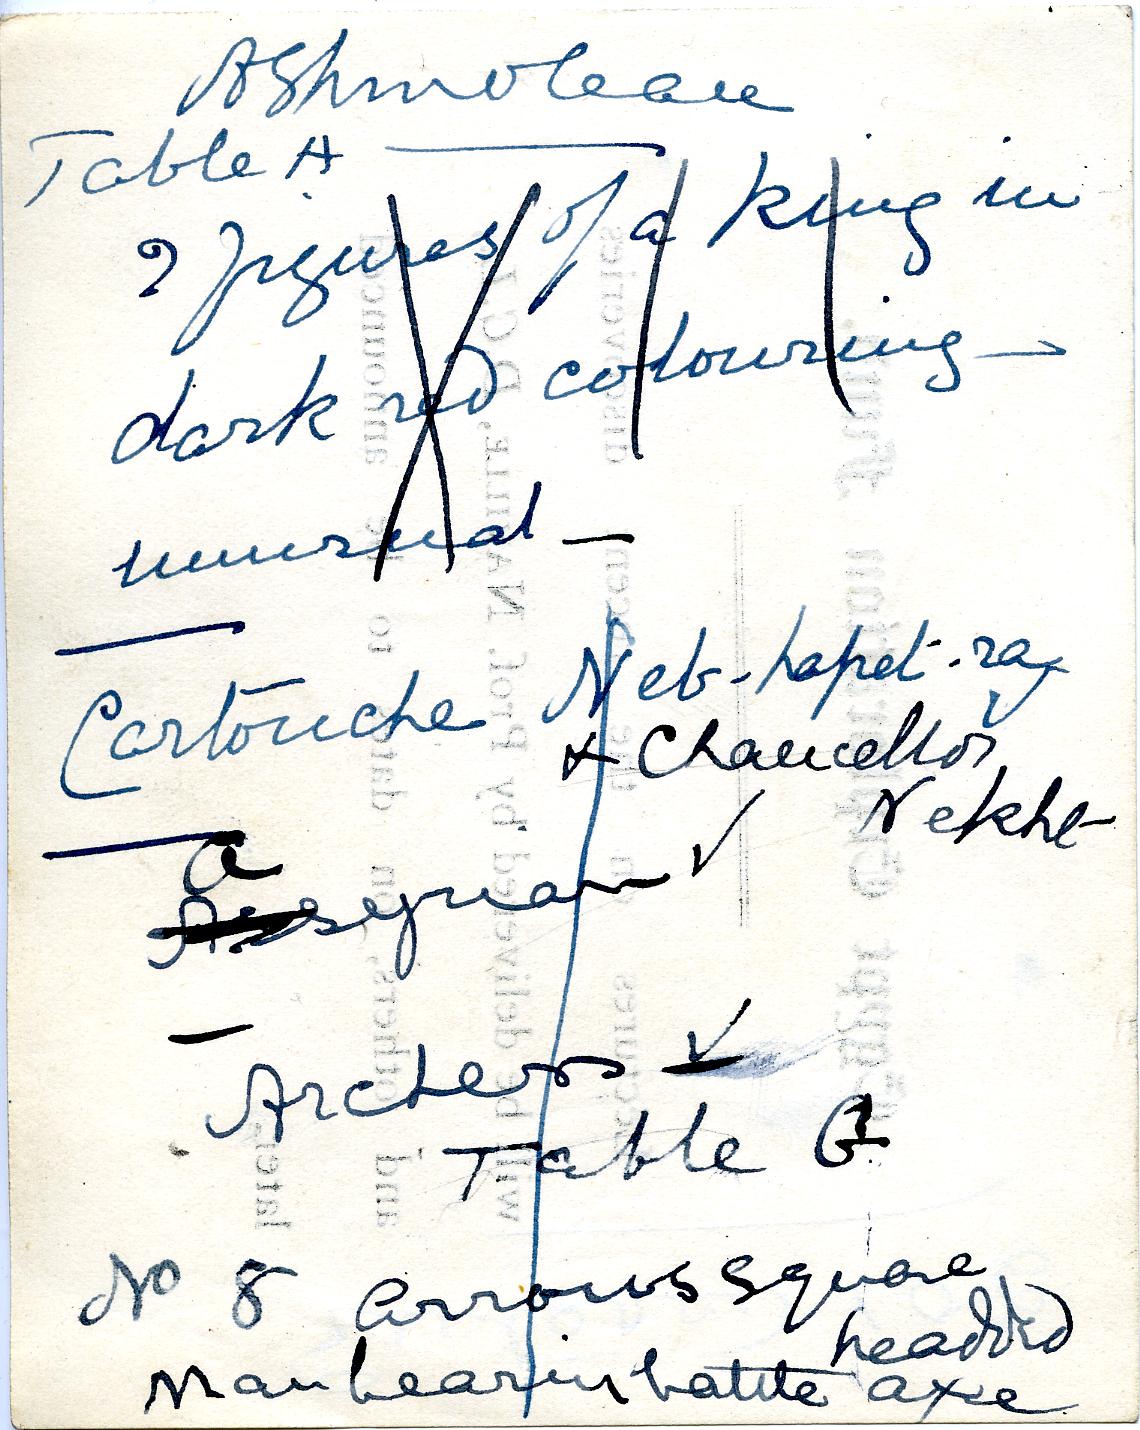 Ashmolean
Table A
2 figures of a king in
dark red colouring —
unusual —
Cartouche Neb-hapet-ra
+ Chancellor
Nekht
a
syrian ✓
— Archers ✓
Table G
No 8 arrows square
headed
Man bearing battle axe